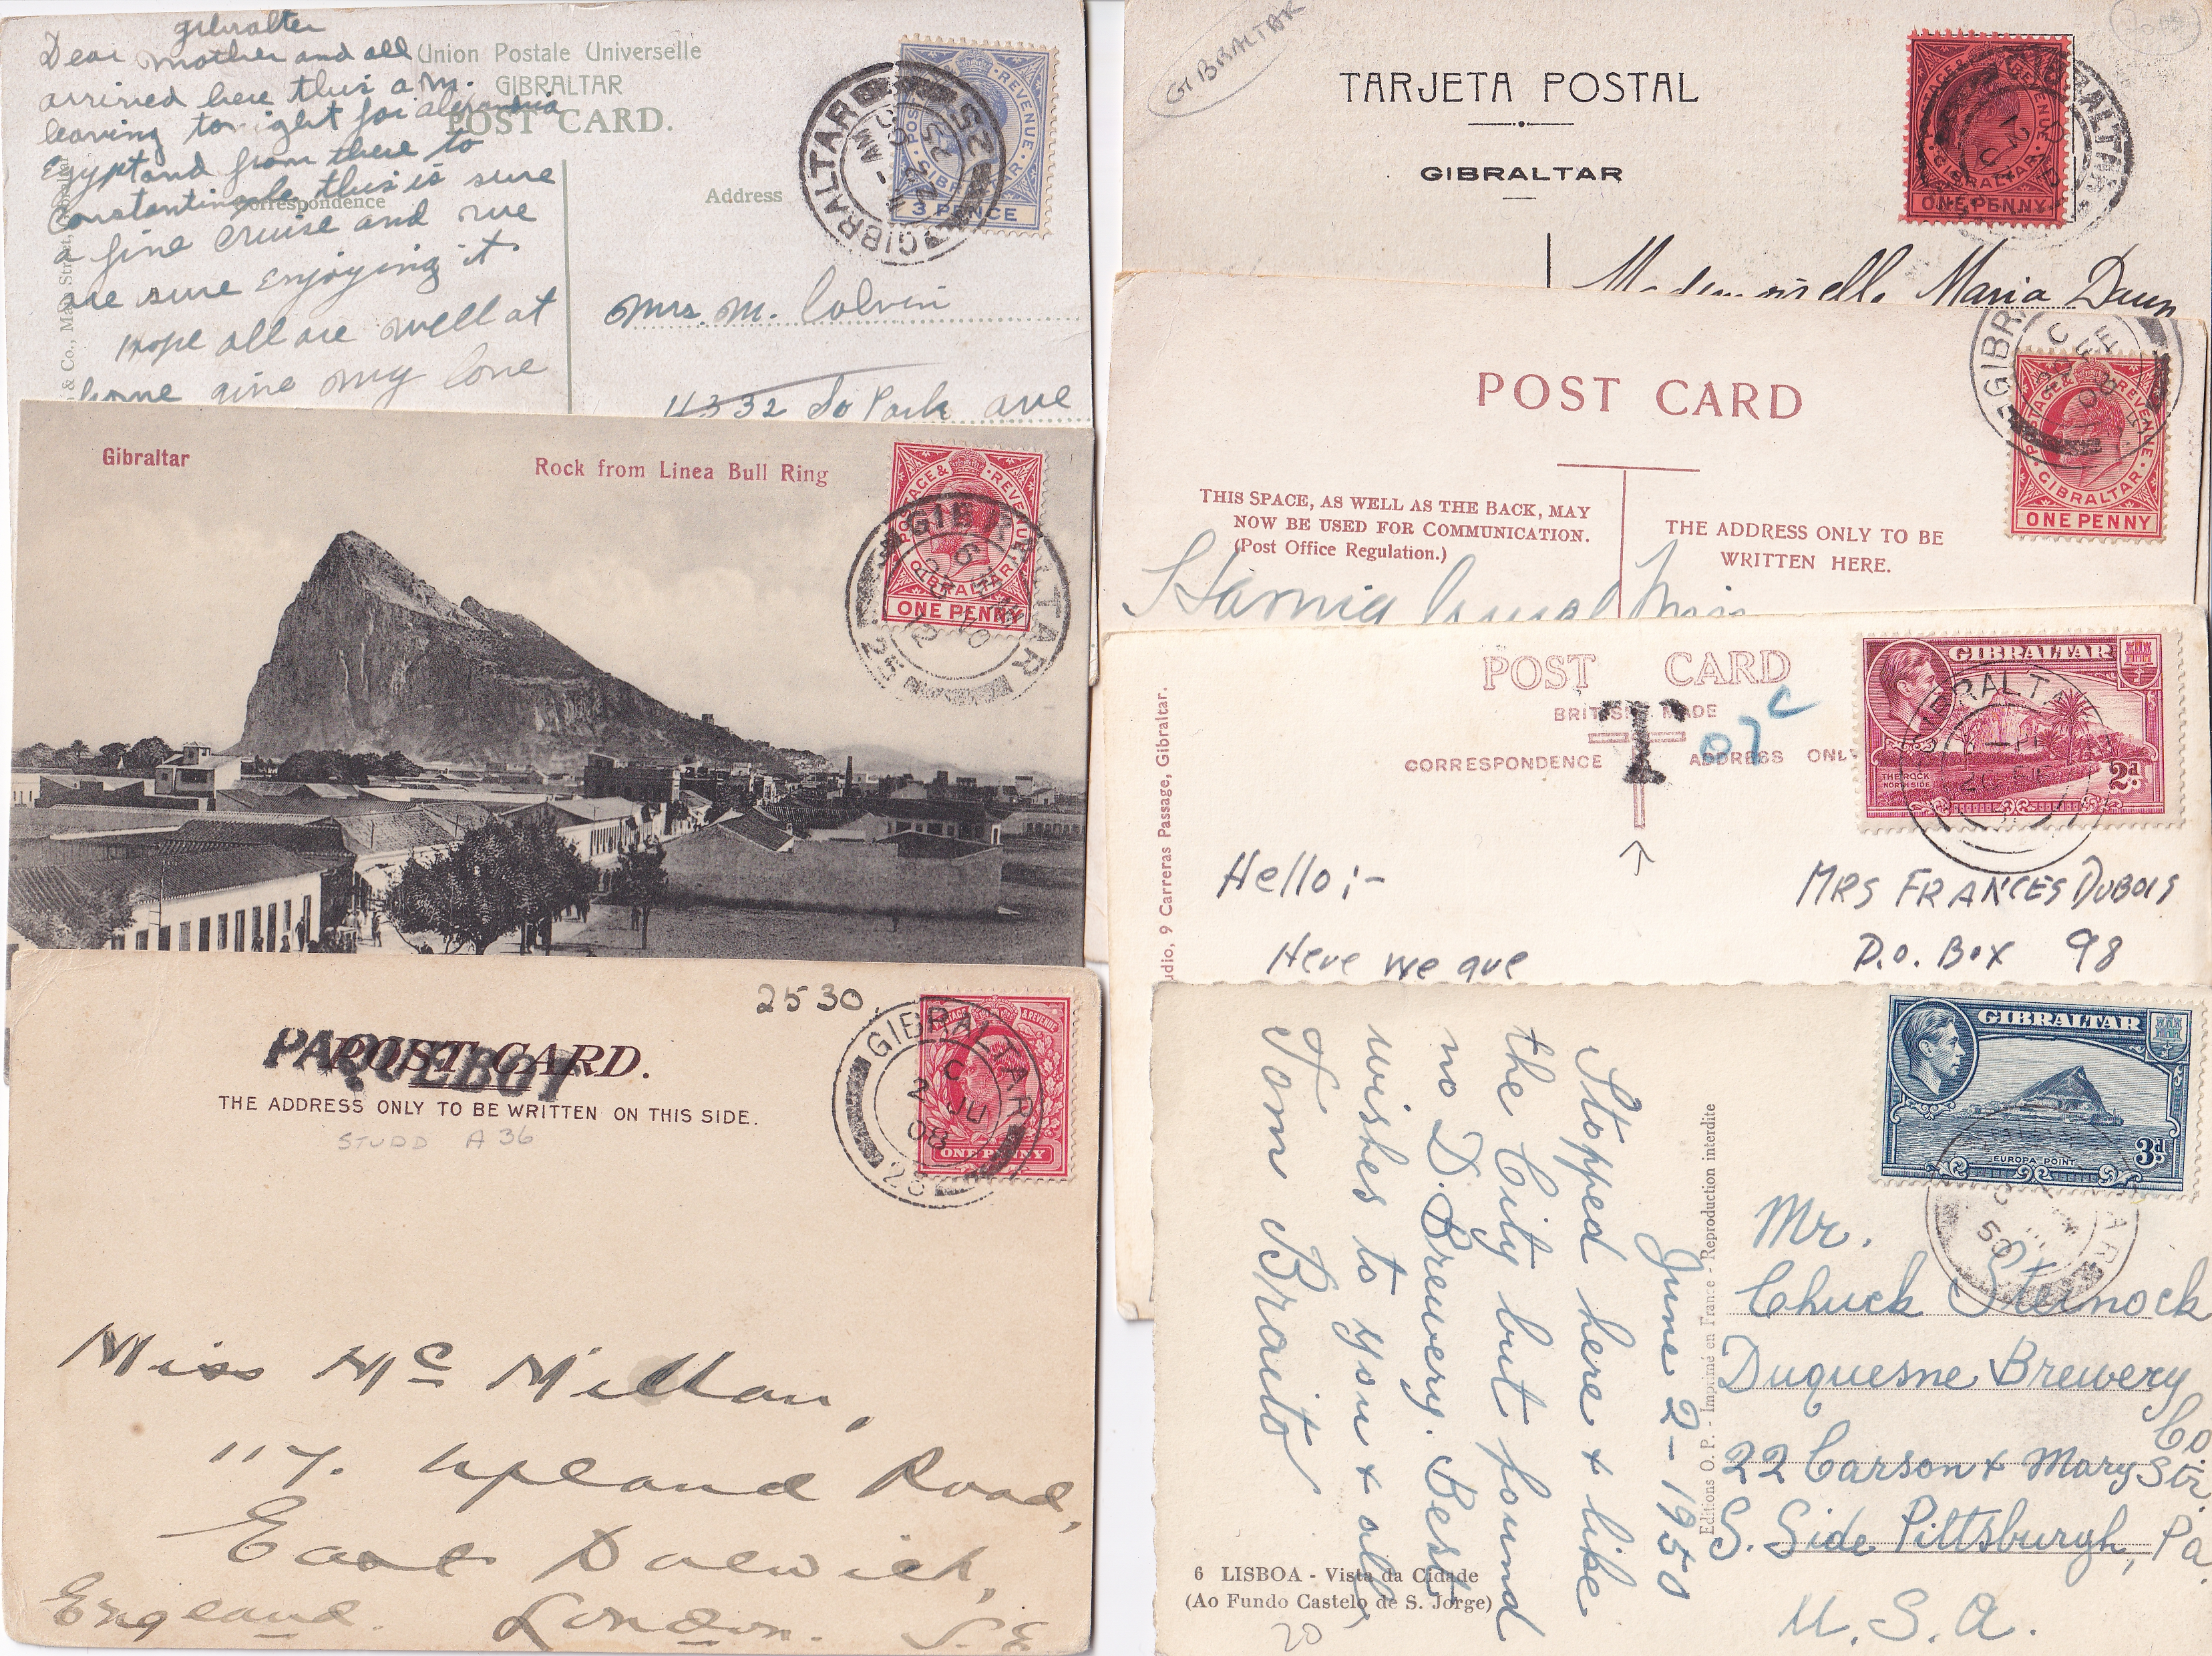 Gibralter
Dear mother and all
arrived here this a.m.
leaving tonight for alexandria
Egypt and from there to
Constantinople this is sure
a fine cruise and we
are sure enjoying it
Hope all are well at
home give my love
Union Postale Universelle
GIBRALTAR
POST CARD.
Correspondence
Address
& Co., Main Street, Gibraltar
POSTAGE & REVENUE
GIBRALTAR
3 PENCE
GIBRALTAR
GIBRALTAR
Mrs. M. Colvin
4332 So Park ave
Gibraltar
Rock from Linea Bull Ring
POSTAGE & REVENUE
GIBRALTAR
ONE PENNY
GIBRALTAR
2530
PAQUEBOT
POST CARD.
THE ADDRESS ONLY TO BE WRITTEN ON THIS SIDE.
STUDD A 36
POSTAGE & REVENUE
ONE PENNY
GIBRALTAR
C
2 JU
08
Miss McMillan,
117. Upland Road,
East Dulwich,
England. London. S.E
GIBRALTAR
TARJETA POSTAL
GIBRALTAR
POSTAGE & REVENUE
GIBRALTAR
ONE PENNY
GIBRALTAR
Mademoiselle Maria
POST CARD
THIS SPACE, AS WELL AS THE BACK, MAY
NOW BE USED FOR COMMUNICATION.
(Post Office Regulation.)
THE ADDRESS ONLY TO BE
WRITTEN HERE.
POSTAGE & REVENUE
GIBRALTAR
ONE PENNY
Miss
POST CARD
BRITISH MADE
T
07c
CORRESPONDENCE
ADDRESS ONLY
udio, 9 Carreras Passage, Gibraltar.
GIBRALTAR
THE ROCK
NORTH SIDE
2d
GIBRALTAR
Hello;-
Here we are
MRS FRANCES DUBOIS
P.O. BOX 98
GIBRALTAR
EUROPA POINT
3d
50
June 2-1950
Stopped here & like
the City but found
no D. Brewery. Best
wishes to you & all
Tom Braito
Editions O. P. - Imprimé en France - Reproduction interdite
Mr.
Chuck Sternock
Duquesne Brewery
Co.
22 Carson & Mary Str.
S. Side Pittsburgh, Pa.
U.S.A.
6 LISBOA - Vista da Cidade
(Ao Fundo Castelo de S. Jorge)
20